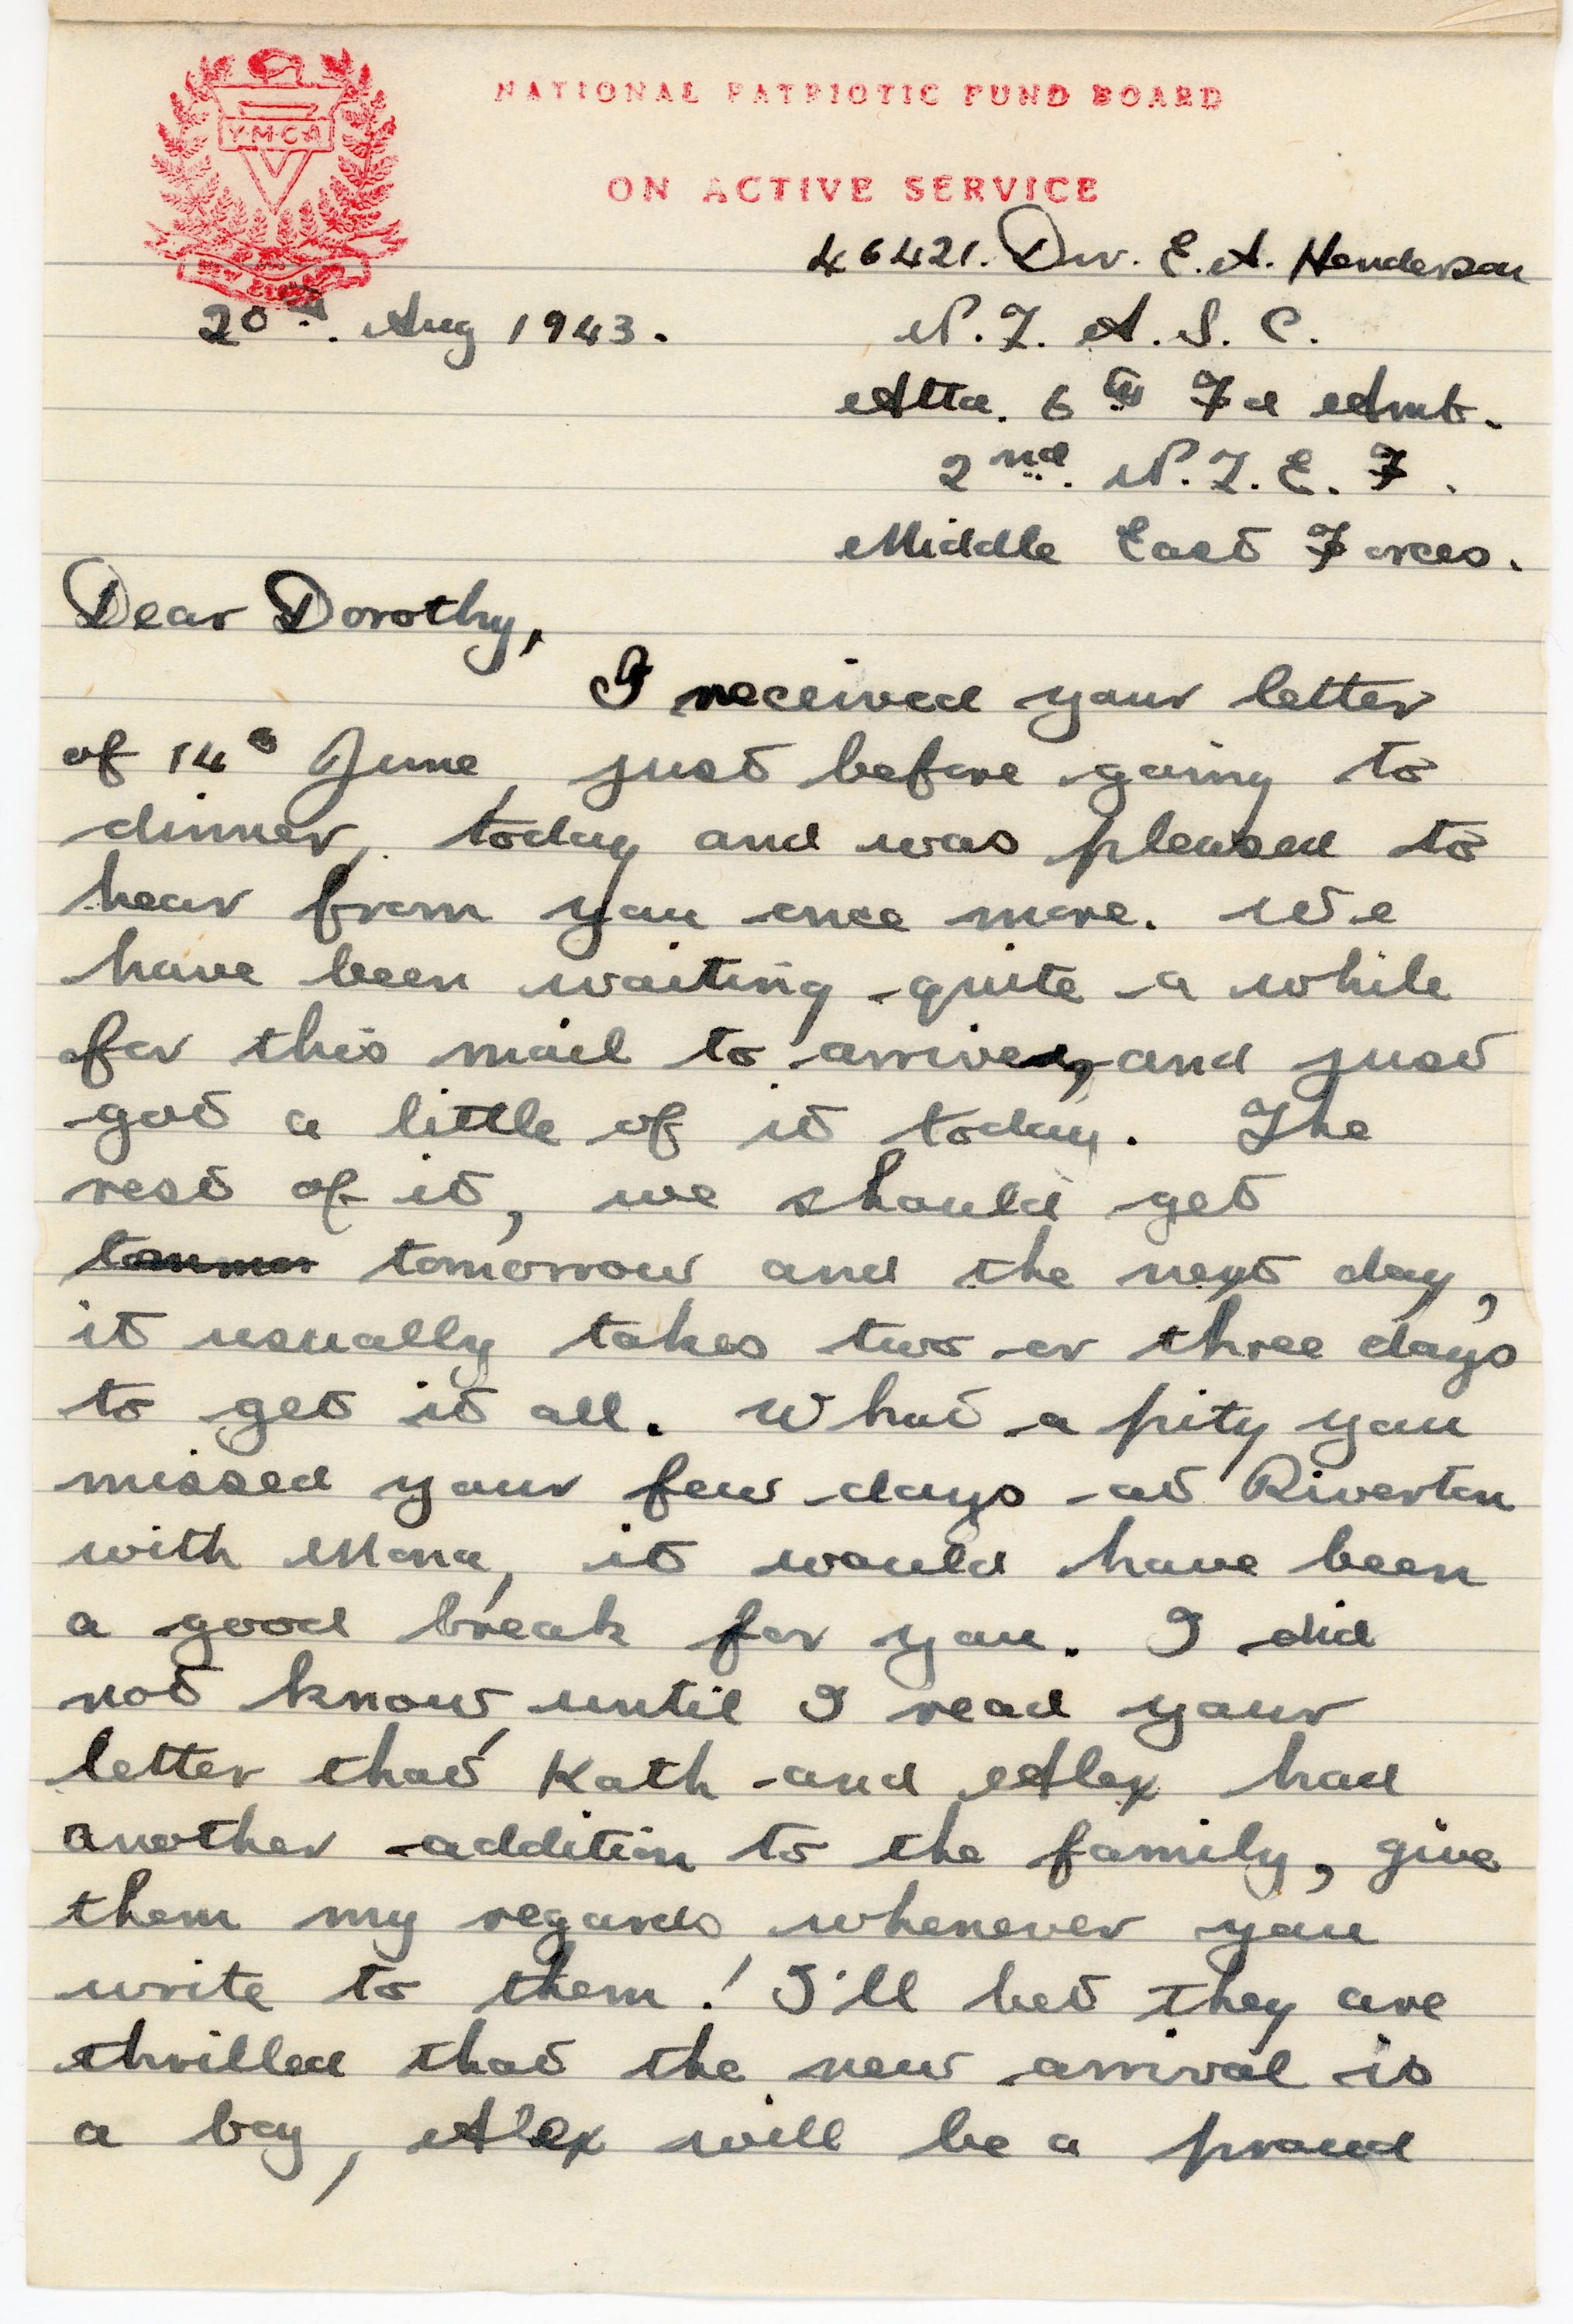 NATIONAL PATRIOTIC FUND BOARD
Y·M·C·A
ON ACTIVE SERVICE
46421. Dvr. E. A. Henderson
20th. Aug 1943.
N. Z. A. S. C.
Attd. 6th Fd Amb.
2nd. N. Z. E. F.
Middle East Forces.
Dear Dorothy,
I received your letter
of 14th June, just before going to
dinner, today and was pleased to
hear from you once more. We
have been waiting quite a while
for this mail to arrive, and just
got a little of it today. The
rest of it, we should get
tomorrow and the next day,
it usually takes two or three days
to get it all. What a pity you
missed your few days at Riverton
with Mona, it would have been
a good break for you. I did
not know, until I read your
letter that Kath and Alex had
another addition to the family, give
them my regards whenever you
write to them! I'll bet they are
thrilled that the new arrival is
a boy, Alex will be a proud